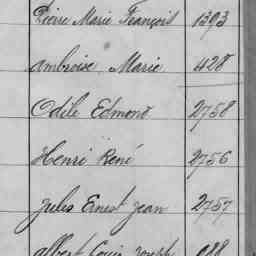 Pierre Marie François 1393
Ambroise Marie 428
Odile Edmond 2758
Henri René 2756
Jules Ernest Jean 2757
Albert Louis Joseph